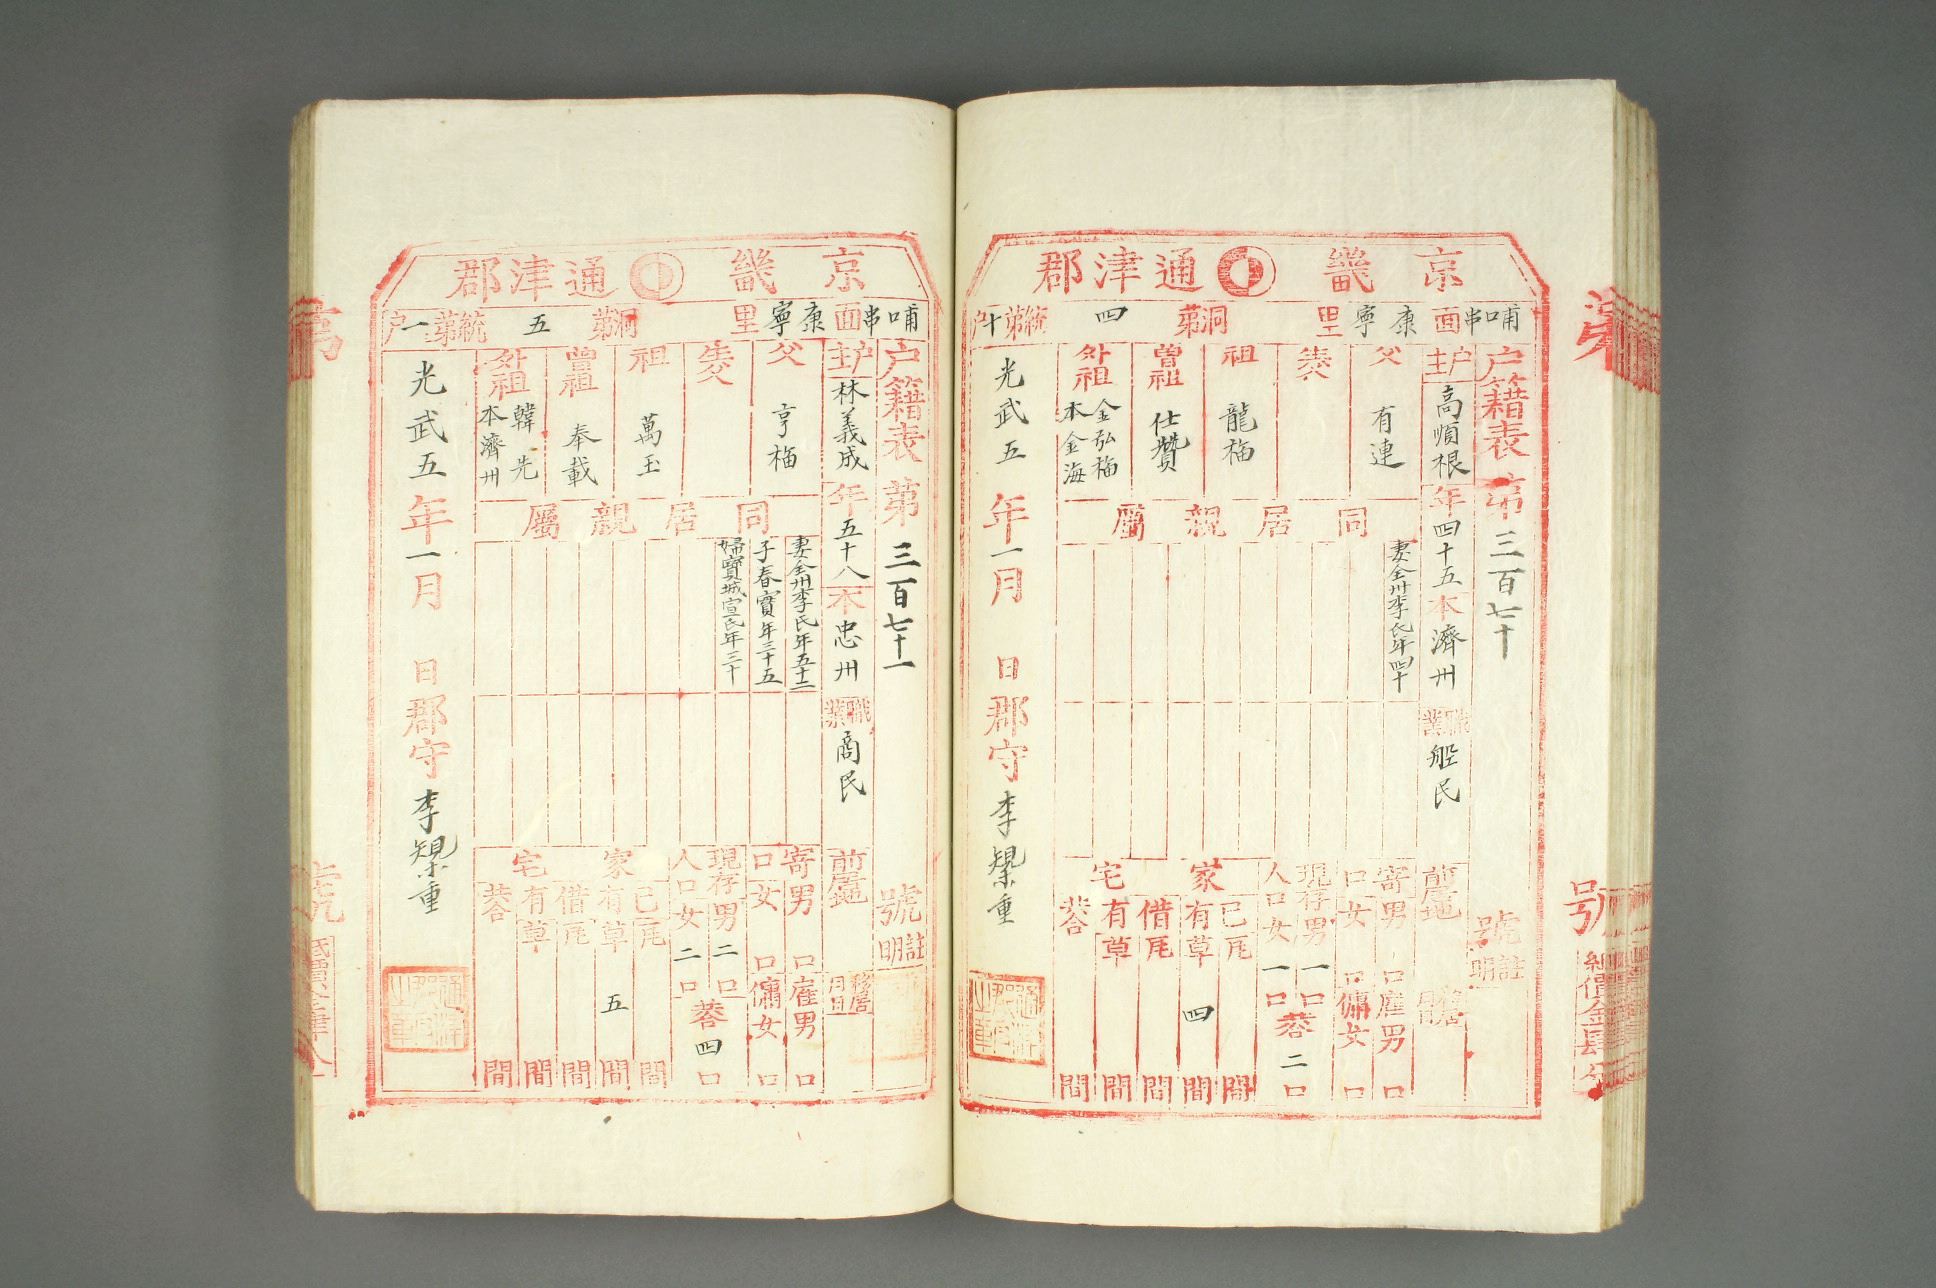 京畿 通津郡
哺串面 康寧里 洞第四統第十户
户籍表 第三百七十 號
户主 高順根 年四十五 本濟州 職業 船民
父 有連
生父
祖 龍福
曾祖 仕贊
外祖 金弘福 本金海
同居親屬
妻金州李氏年四十
前居地
移居月日
寄口 男 口 女 口
雇男 口 傭女 口
現存人口 男一口 女一口 共二口
家宅
已有 瓦 間 草 四間
借有 瓦 間 草 間
共 間
光武五年一月 日 郡守 李
號
京畿 通津郡
哺串面 康寧里 洞第五統第一户
户籍表 第三百七十一 號
户主 林義成 年五十八 本忠州 職業 商民
父 亨福
生父
祖 萬玉
曾祖 奉載
外祖 韓先 本濟州
同居親屬
妻全州李氏年五十二
子春實年三十五
婦寶城宣氏年三十
前居地
移居月日
寄口 男 口 女 口
雇男 口 傭女 口
現存人口 男二口 女二口 共四口
家宅
已有 瓦 間 草 五間
借有 瓦 間 草 間
共 間
光武五年一月 日 郡守 李